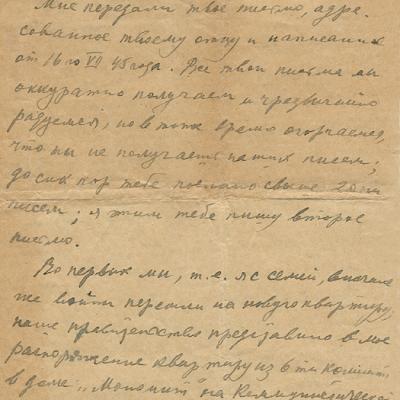 Мне передали твое письмо, адре-
сованное твоему отцу и написанное
от 16го VII 45 года. Все твои письма мы
аккуратно получаем и чрезвычайно
радуемся, но в тоже время огорчаемся,
что ты не получаешь наших писем;
до сих пор тебе послано свыше 20ти
писем; я этим тебе пишу второе
письмо.
Во первых мы, т.е. я с семьей, вначале
же войны переехали на новую квартиру,
наше правительство предоставило в мое
распоряжение квартиру из 6ти комнат
в доме „Монолит" на Коммунистической